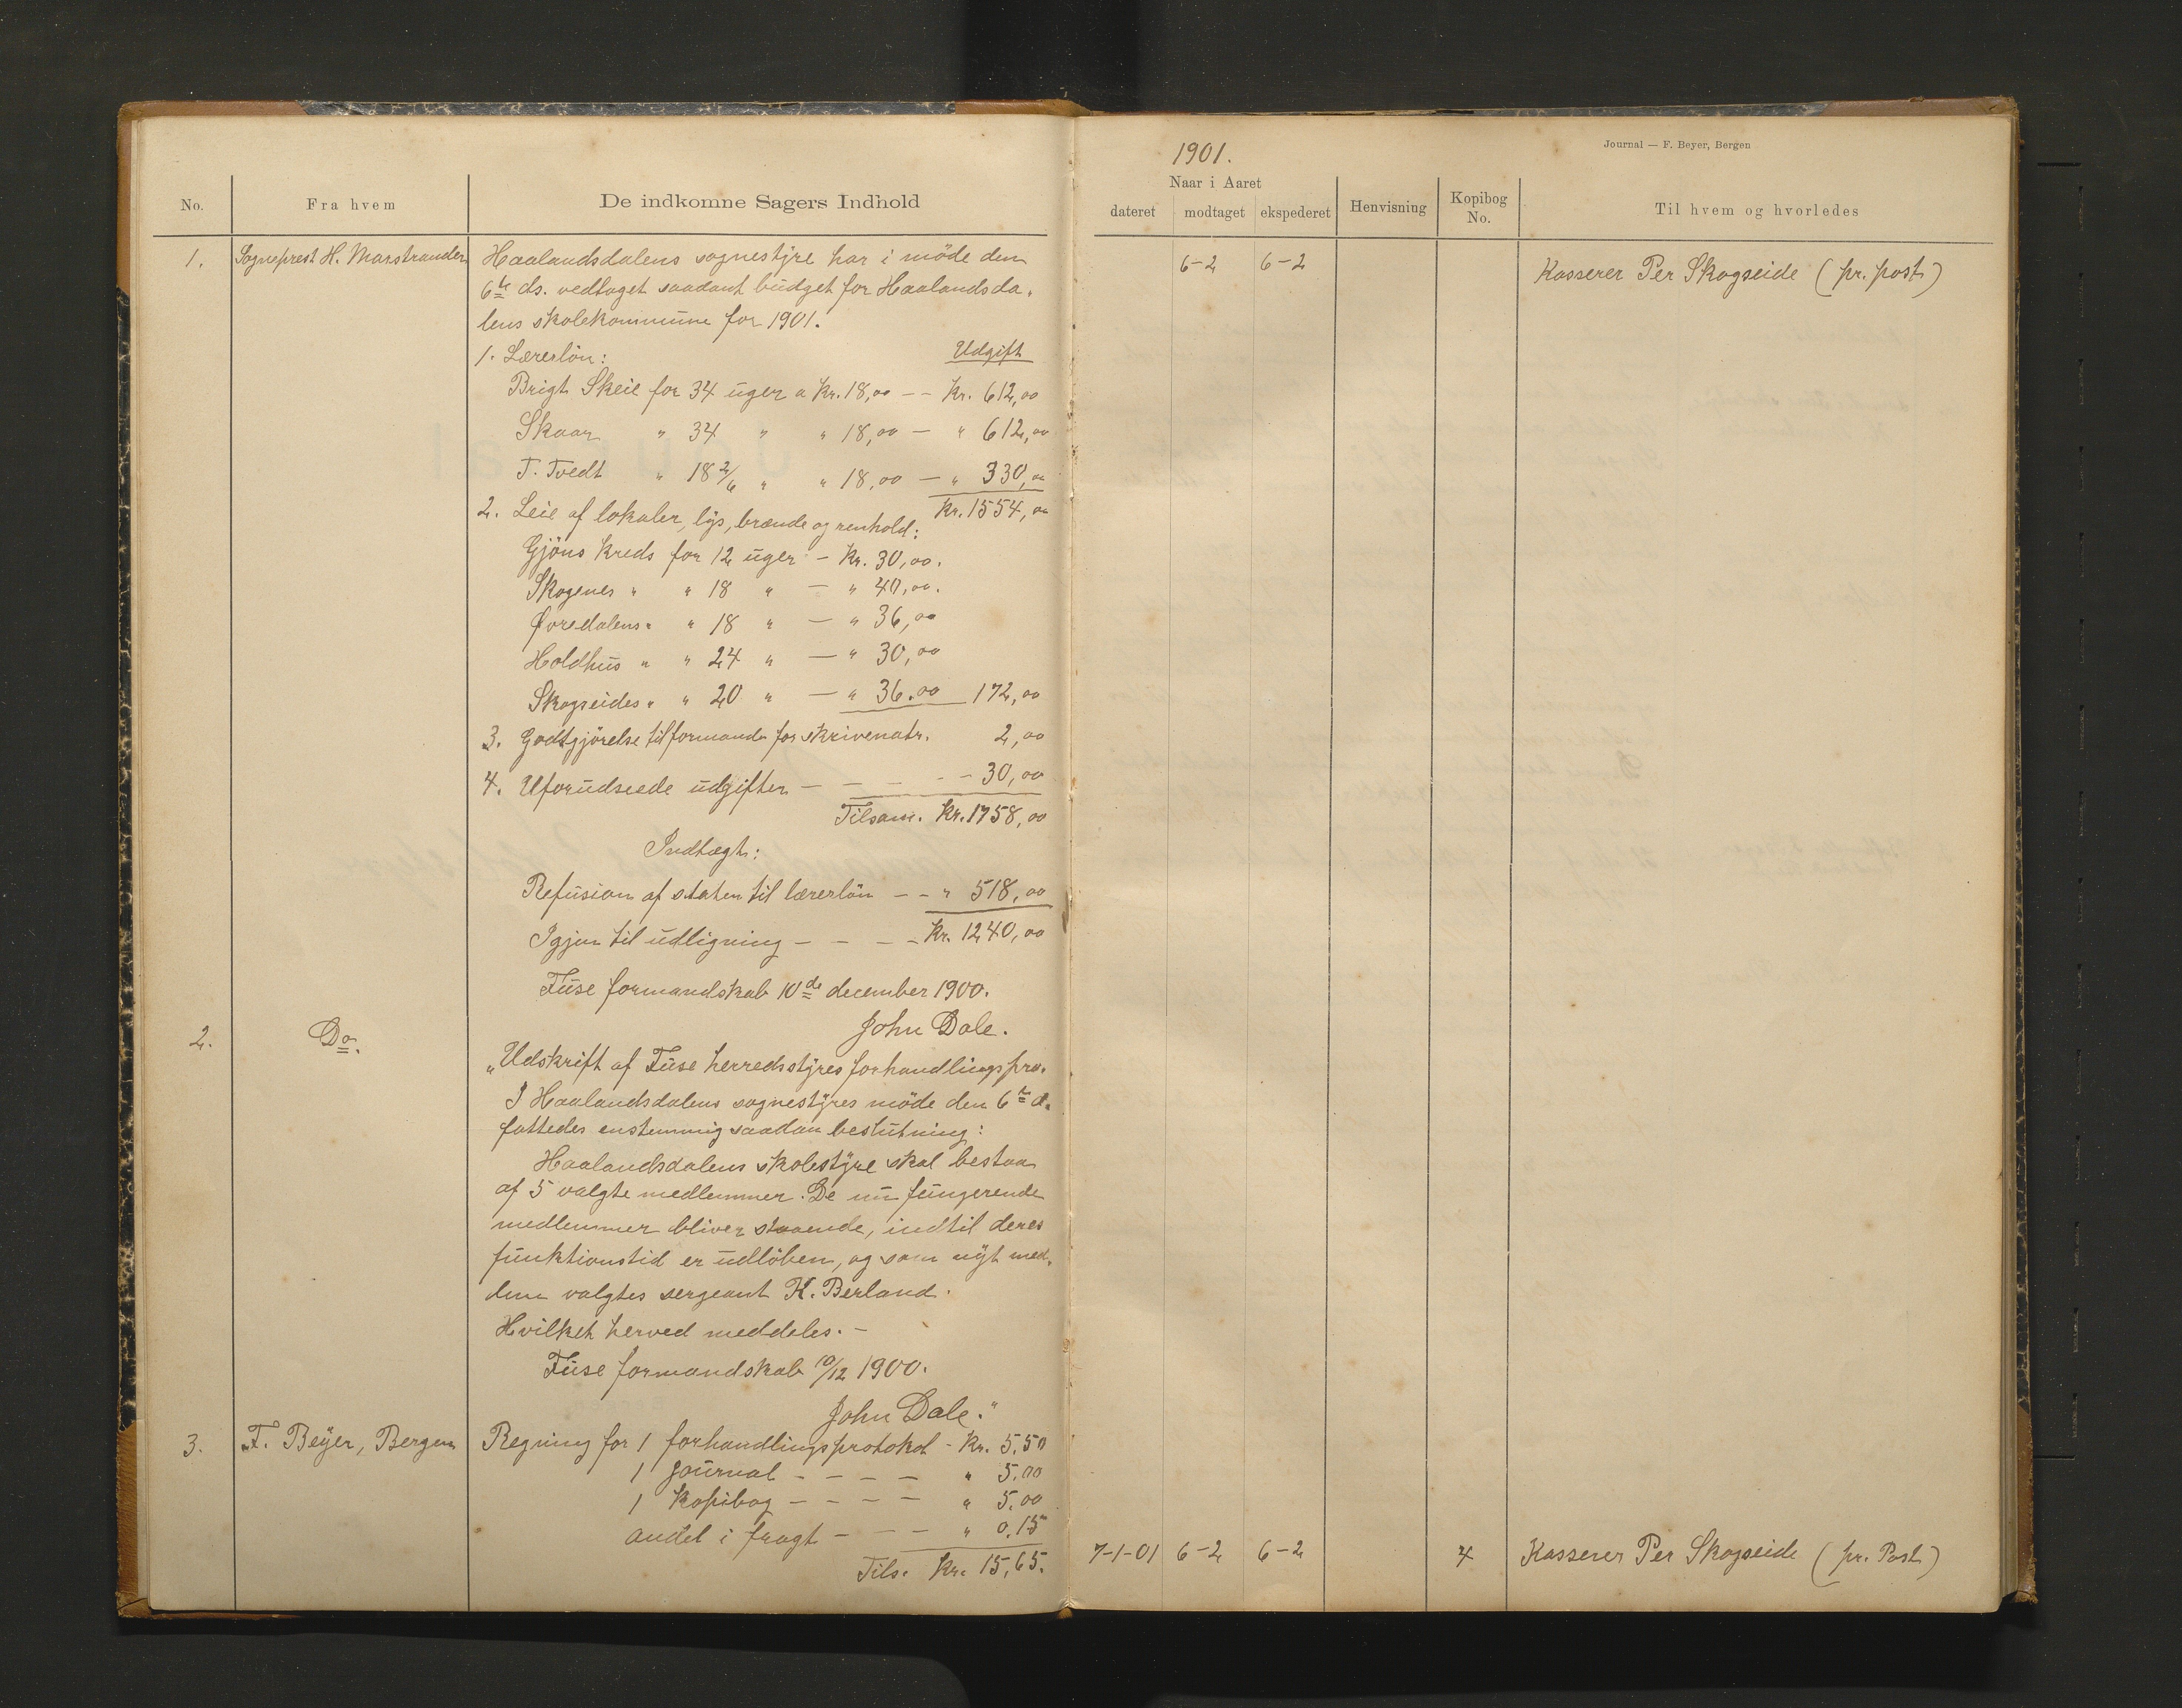 1901.
Journal — F. Beyer, Bergen
No.
Fra hvem
De indkomne Sagers Indhold
Naar i Aaret
dateret
modtaget
ekspederet
Henvisning
Kopibog
No.
Til hvem og hvorledes
1. Sogneprest H. Marstrander
Haalandsdalens sognestyre har i möde den
6te ds. vedtaget saadant budget for Haalandsda-
lens skolekommune for 1901.
1. Lærerlön: Udgift
Brigt Skeie for 34 uger a kr. 18,00 -- Kr. 612,00
Skaar " 34 " " 18,00 — " 612,00
T. Tvedt " 18 2/6 " " 18,00 — " 330,00
Kr. 1554,00
2. Leie af lokaler, lys, brænde og renhold:
Gjöns kreds for 12 uger - Kr. 30,00.
Skogenes " " 18 " — " 40,00.
Øvredalens " " 18 " — " 36,00
Holdhus " " 24 " — " 30,00
Skogseides " " 20 " — " 36.00 172,00
3. Godtgjörelse til formand for skrivematr. 2,00
4. Uforudseede udgifter - - - - - 30,00
Tilsam. Kr. 1758,00
Indtægt:
Refusion af staten til lærerlön -- " 518,00
Igjen til udligning - - - - Kr. 1240,00
Fuse formandskab 10de december 1900.
John Dale.
2. Do.
"Udskrift af Fuse herredsstyres forhandlingspro.
I Haalandsdalens sognestyres möde den 6te d.
fattedes enstemmig saadan beslutning:
Haalandsdalens skolestyre skal bestaa
af 5 valgte medlemmer. De nu fungerende
medlemmer bliver staaende, indtil deres
funktionstid er udlöben, og som nyt med-
lem valgtes sergeant K. Berland.
Hvilket herved meddeles. -
Fuse formandskab 10/12 1900.
John Dale."
3. F. Beyer, Bergen
Regning for 1 forhandlingsprotokol - Kr. 5,50
1 journal - - - - " 5.00
1 kopibog - - - - " 5,00
andel i fragt - - - " 0.15
Tils. Kr. 15,65.
6-2 6-2 Kasserer Per Skogseide (pr. post)
7-1-01 6-2 6-2 4 Kasserer Per Skogseide (pr. Post)